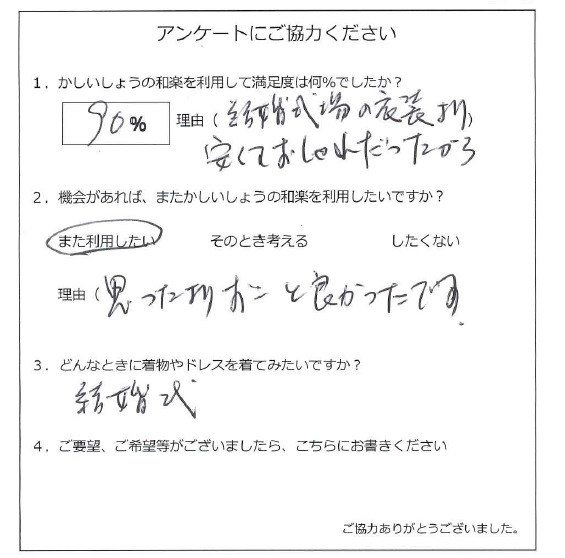 アンケートにご協力ください
1．かしいしょうの和楽を利用して満足度は何%でしたか？
90% 理由（結婚式場の衣装より）
安くておしゃれだったから
2．機会があれば、またかしいしょうの和楽を利用したいですか？
また利用したい そのとき考える したくない
理由（思ったより と良かったです。
3．どんなときに着物やドレスを着てみたいですか？
結婚式
4．ご要望、ご希望等がございましたら、こちらにお書きください
ご協力ありがとうございました。